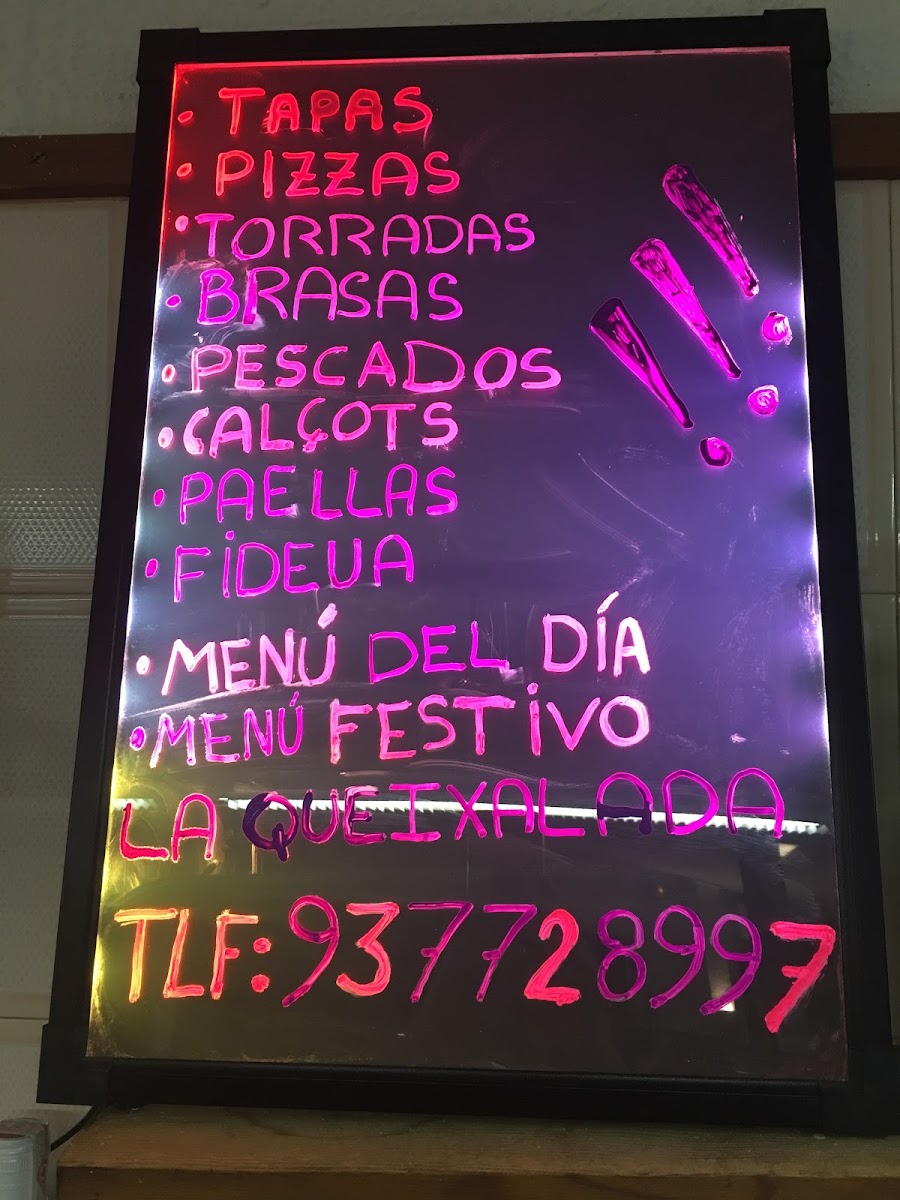 • TAPAS
• PIZZAS
• TORRADAS
• BRASAS
• PESCADOS
• CALÇOTS
• PAELLAS
• FiDEUA
• MENÚ DEL DÍA
• MENÚ FESTiVO
LA QUEIXALADA
TLF: 937728997
!!!